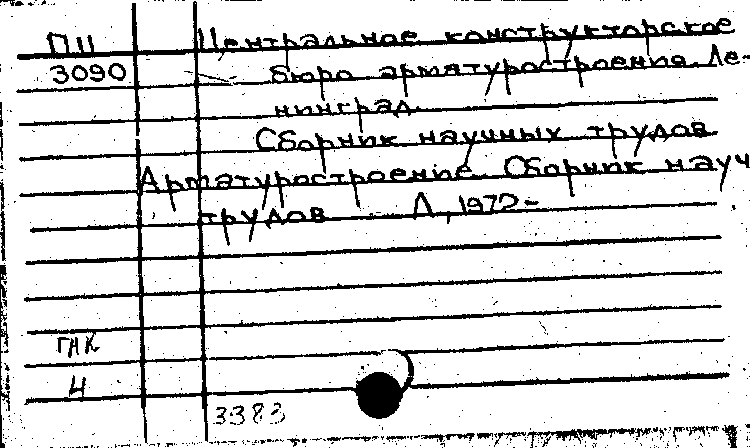 П11 Центральное конструкторское
3090 бюро арматуростроения. Ле-
нинград.
Сборник научных трудов
Арматуростроение. Сборник науч
трудов Л, 1972-
ГНК
4
3383